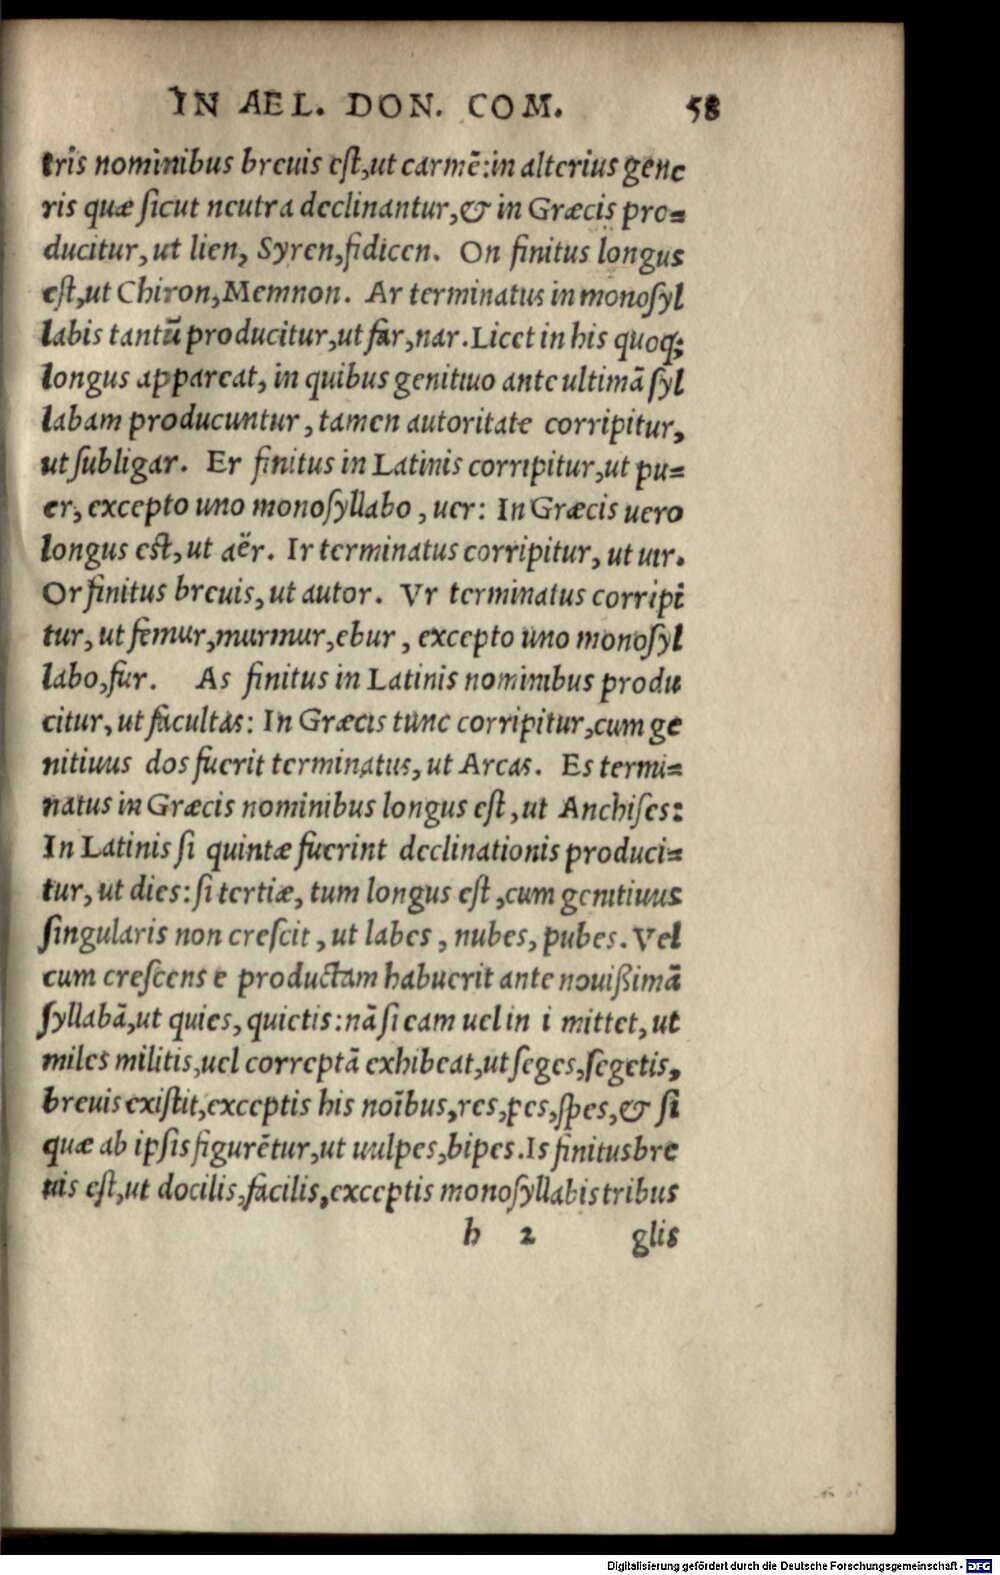 IN AEL. DON. COM. 58
tris nominibus breuis eſt,ut carmẽ:in alterius gene
ris quæ ſicut neutra declinantur,& in Græcis pro=
ducitur, ut lien, Syren,fidicen. On finitus longus
eſt,ut Chiron,Memnon. Ar terminatus in monoſyl
labis tantũ producitur,ut far,nar.Licet in his quoq;
longus appareat, in quibus genitiuo ante ultimã ſyl
labam producuntur, tamen autoritate corripitur,
ut ſubligar. Er finitus in Latinis corripitur,ut pu=
er, excepto uno monoſyllabo, uer: In Græcis uero
longus eſt, ut aër. Ir terminatus corripitur, ut uir.
Or finitus breuis, ut autor. Vr terminatus corripi
tur, ut femur,murmur,ebur, excepto uno monoſyl
labo,fur. As finitus in Latinis nominibus produ
citur, ut facultas: In Græcis tunc corripitur,cum ge
nitiuus dos fuerit terminatus, ut Arcas. Es termi=
natus in Græcis nominibus longus eſt, ut Anchiſes:
In Latinis ſi quintæ fuerint declinationis produci=
tur, ut dies: ſi tertiæ, tum longus eſt,cum genitiuus
ſingularis non creſcit, ut labes, nubes, pubes. Vel
cum creſcens e productam habuerit ante nouißimã
ſyllabã,ut quies, quietis: nã ſi eam uel in i mittet, ut
miles militis,uel correptã exhibeat,ut ſeges,ſegetis,
breuis exiſtit,exceptis his noĩbus,res,pes,ſpes,& ſi
quæ ab ipſis figurẽtur,ut uulpes,bipes.Is finitus bre
uis eſt,ut docilis,facilis,exceptis monoſyllabis tribus
h 2 glis
Digitalisierung gefördert durch die Deutsche Forschungsgemeinschaft - DFG